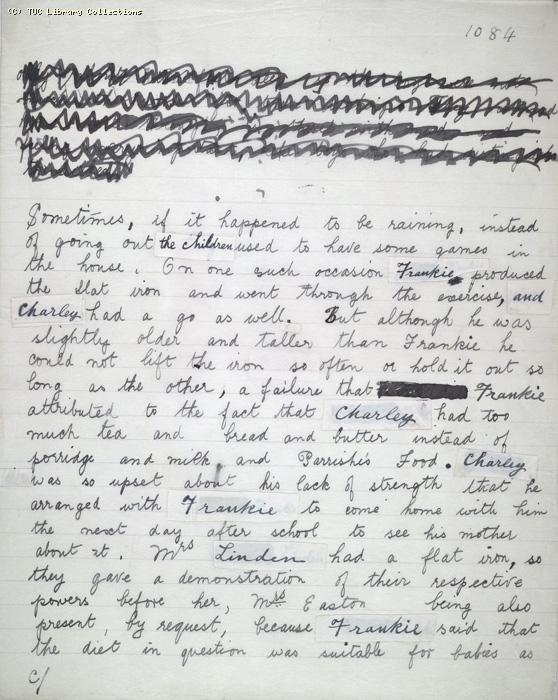 (C) TUC Library Collections
1084
Sometimes, if it happened to be raining, instead
of going out the children used to have some games in
the house. On one such occasion Frankie produced
the flat iron and went through the exercise, and
Charley had a go as well. But although he was
slightly older and taller than Frankie he
could not lift the iron so often or hold it out so
long as the other, a failure that Frankie
attributed to the fact that Charley had too
much tea and bread and butter instead of
porridge and milk and Parrish's Food. Charley
was so upset about his lack of strength that he
arranged with Frankie to come home with him
the next day after school to see his mother
about it. Mrs Linden had a flat iron, so
they gave a demonstration of their respective
powers before her, Mrs Easton being also
present, by request, because Frankie said that
the diet in question was suitable for babies as
c/